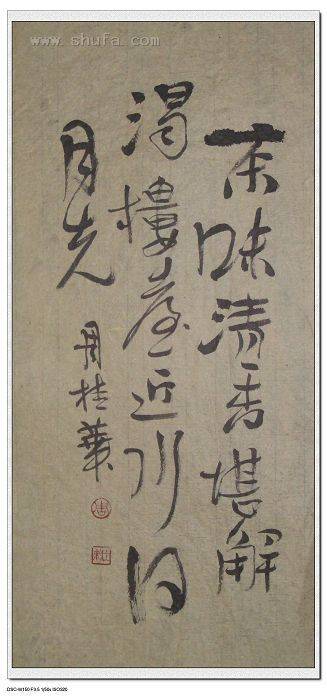 www.shufa.com
茶味清香堪解
渴樓臺近水得
月先
周桂華
DSC-W150 F3.5 1/50s ISO320